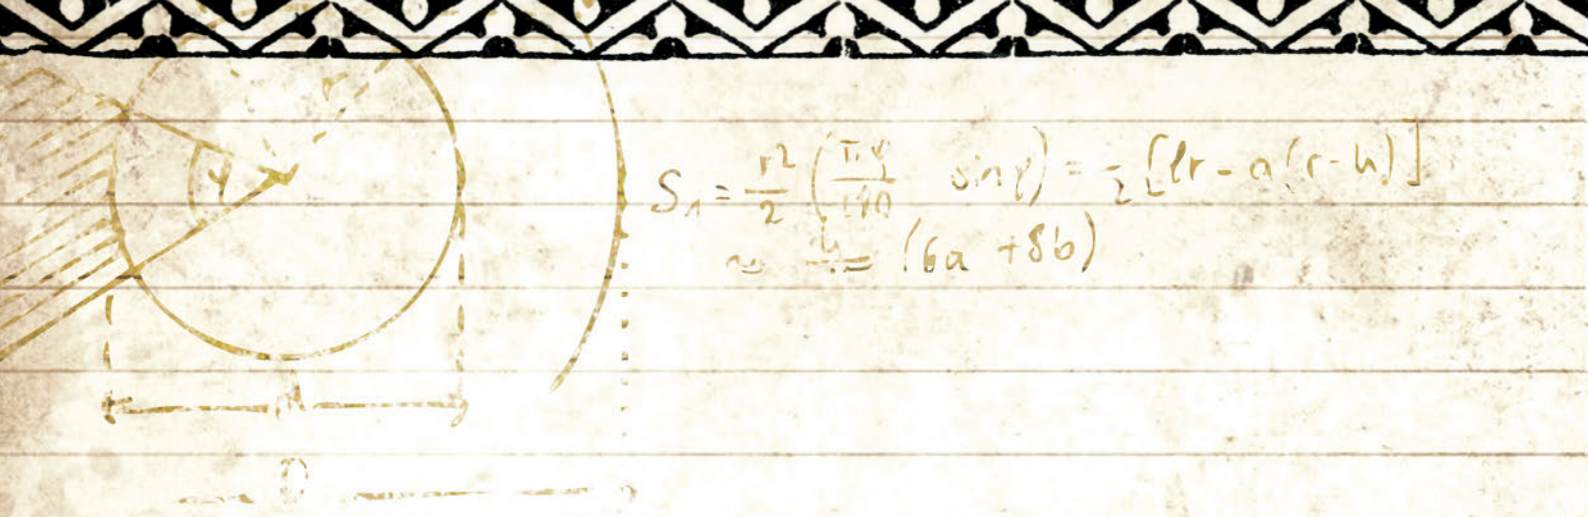 r
φ
S₁ = r²/2 (πφ/180 sinφ) = 1/2 [lr - a(r-h)]
≈ (6a +8b)
d
D